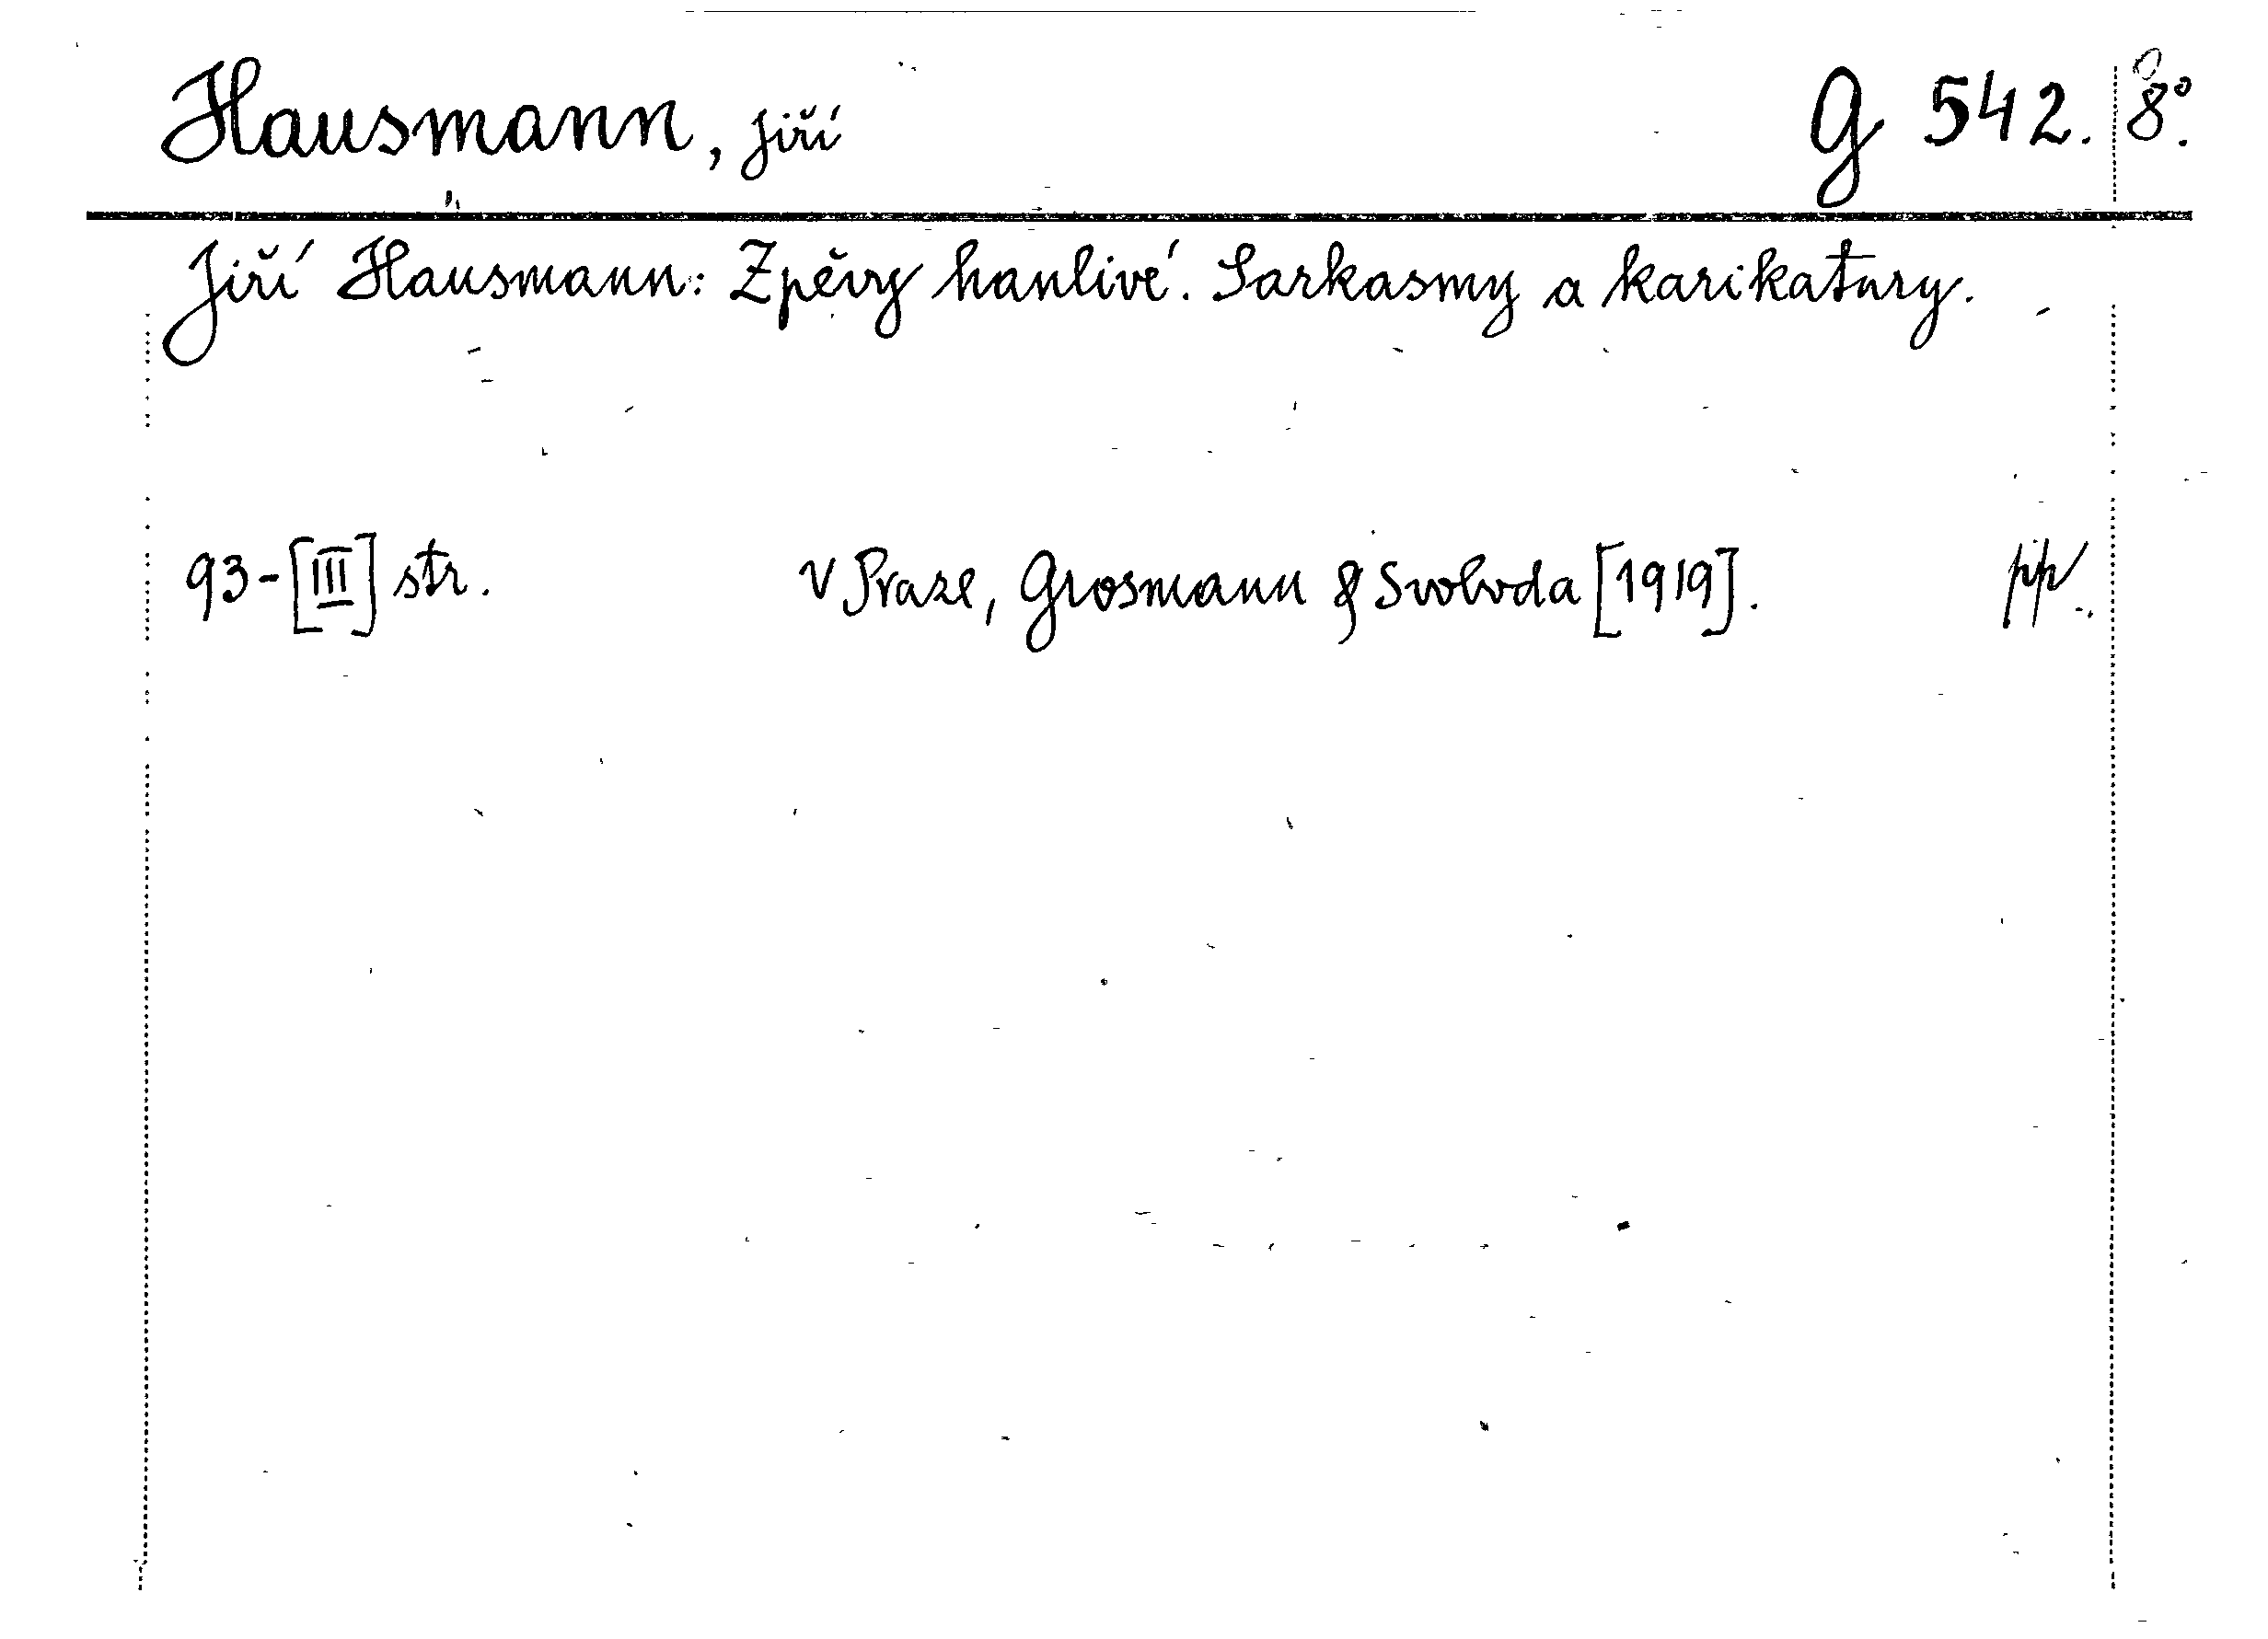 Hausmann, Jiří G 542. 8°.
Jiří Hausmann: Zpěvy hanlivé. Sarkasmy a karikatury.
93-[III] str. V Praze, Grosman & Svoboda [1919]. pp.